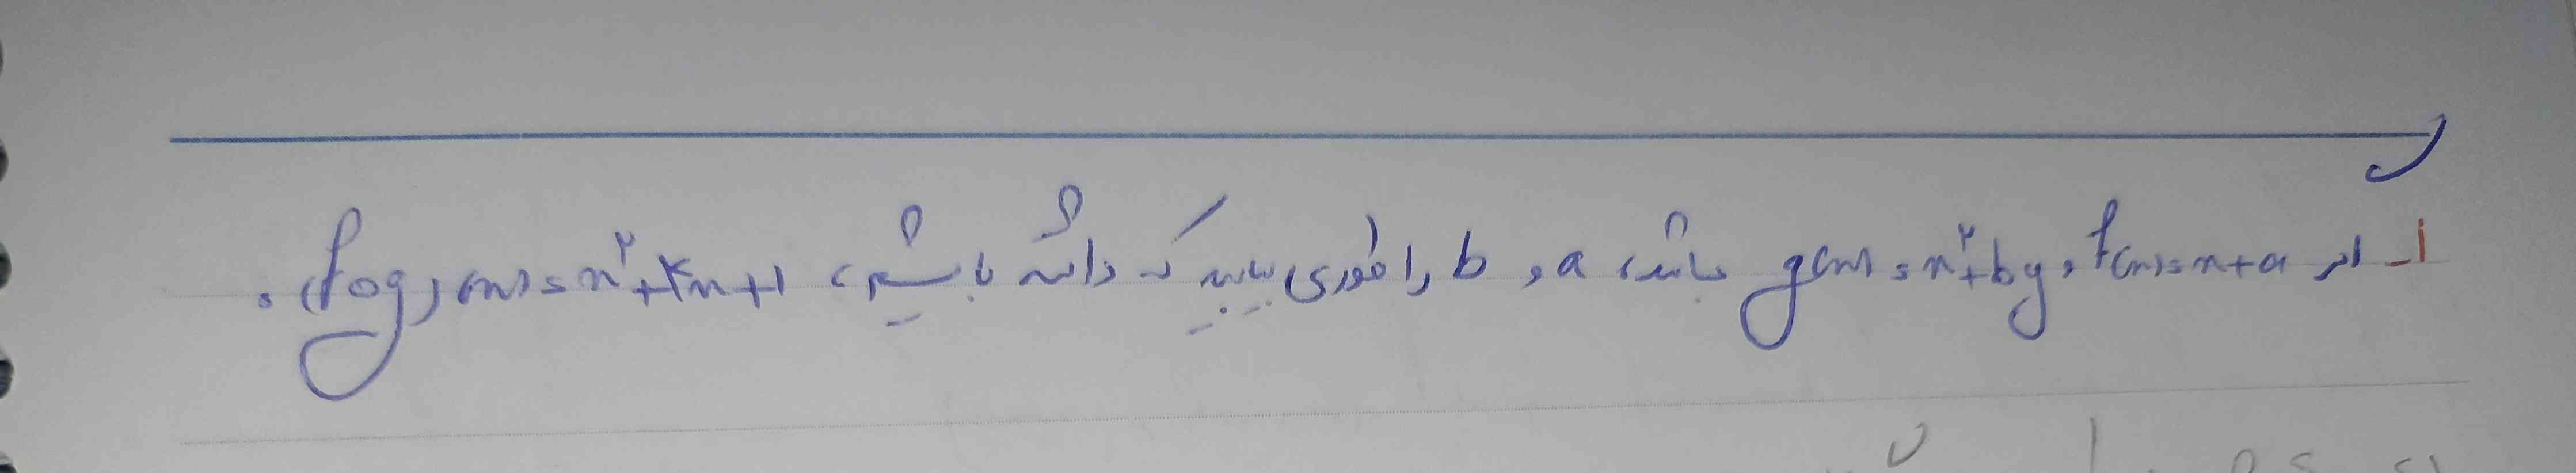 1- اگر f(x)=x+a و g(x)=x²+by باشد، a و b را طوری بیابید که داشته باشیم، (fog)(x)=x²+4x+1.